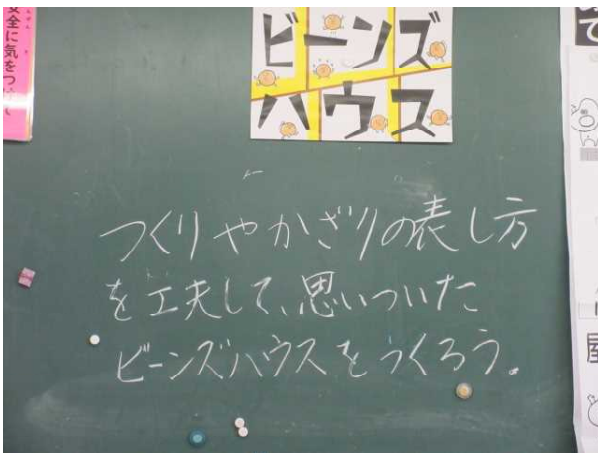 安全に気をつけて
ビーンズ
ハウス
つくりやかざりの表し方
を工夫して、思いついた
ビーンズハウスをつくろう。
て
屋